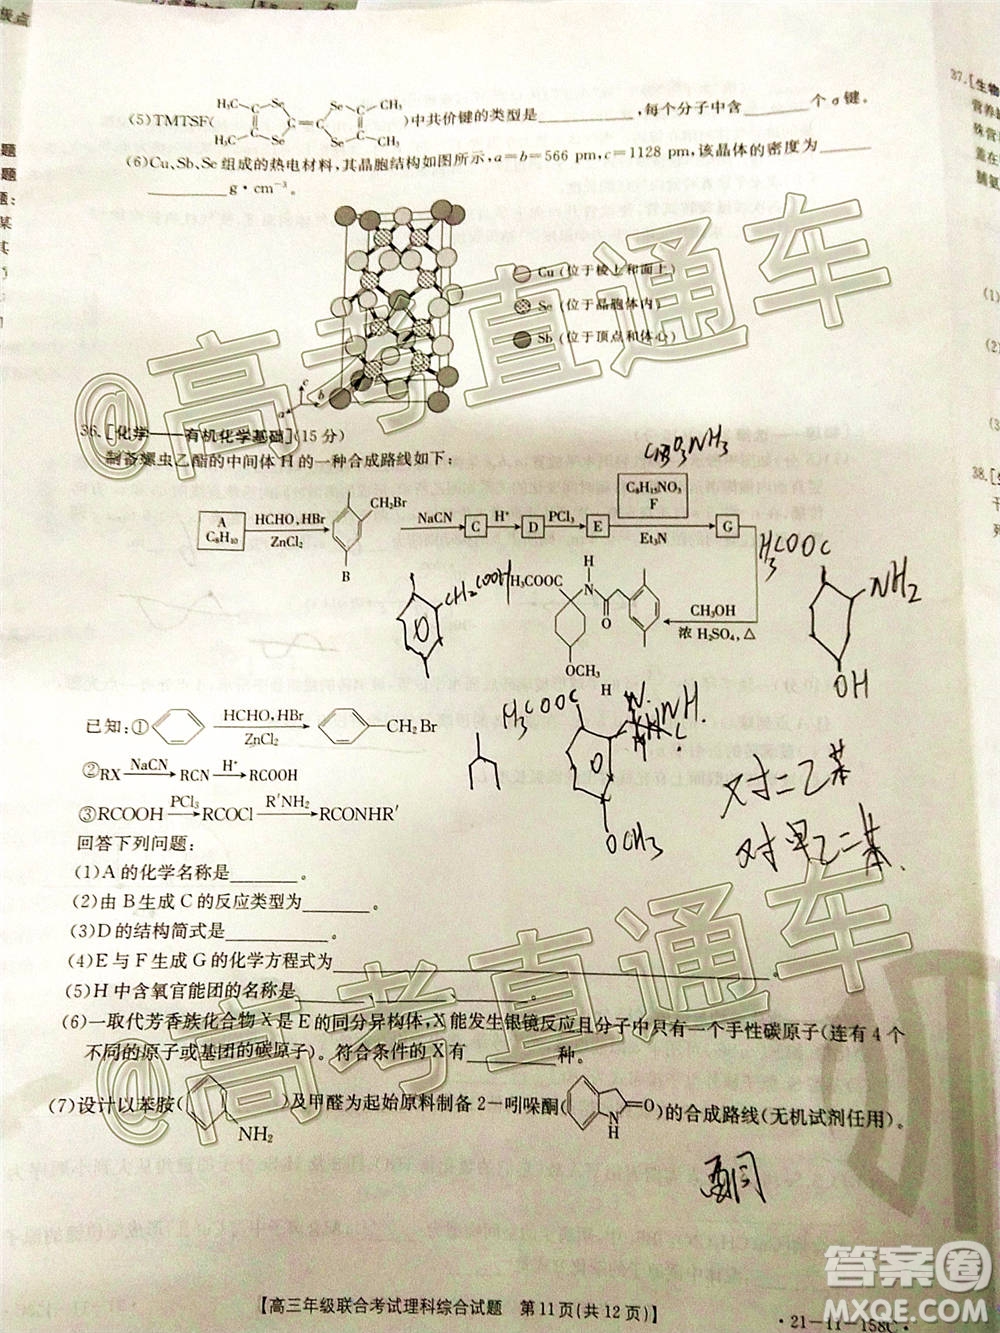 (5)TMTSF( H₃C Se Se CH₃ C=C H₃C Se Se CH₃ )中共价键的类型是________,每个分子中含________个σ键。
(6)Cu、Sb、Se组成的热电材料,其晶胞结构如图所示,a=b=566 pm,c=1128 pm,该晶体的密度为________g·cm⁻³。
Cu (位于棱上和面上)
Se (位于晶胞体内)
Sb (位于顶点和体心)
c
a b
36.[化学——有机化学基础](15分)
制备螺虫乙酯的中间体H的一种合成路线如下:
A C₈H₁₀ HCHO,HBr ZnCl₂ CH₂Br B NaCN C H⁺ D PCl₃ E C₈H₁₅NO₃ F Et₃N G
H₃COOC H N O OCH₃ H CH₃OH 浓 H₂SO₄,△
CH₂COOH
H₃COOC NH₂ OH
H₃COOC
OCH₃
对二乙苯
已知:① HCHO,HBr ZnCl₂ CH₂Br
②RX NaCN RCN H⁺ RCOOH
③RCOOH PCl₃ RCOCl R′NH₂ RCONHR′
回答下列问题:
(1)A的化学名称是________。
(2)由B生成C的反应类型为________。
(3)D的结构简式是________。
(4)E与F生成G的化学方程式为________。
(5)H中含氧官能团的名称是________。
(6)一取代芳香族化合物X是E的同分异构体,X能发生银镜反应且分子中只有一个手性碳原子(连有4个
不同的原子或基团的碳原子)。符合条件的X有________种。
(7)设计以苯胺( NH₂ )及甲醛为起始原料制备2-吲哚酮( N H O )的合成路线(无机试剂任用)。
酮
【高三年级联合考试理科综合试题 第11页(共12页)】
·21-11-158C·
@高考直通车
@高考直通车
答案圈
MXQE.COM
37.[生物
38.[生
(1)
(2)